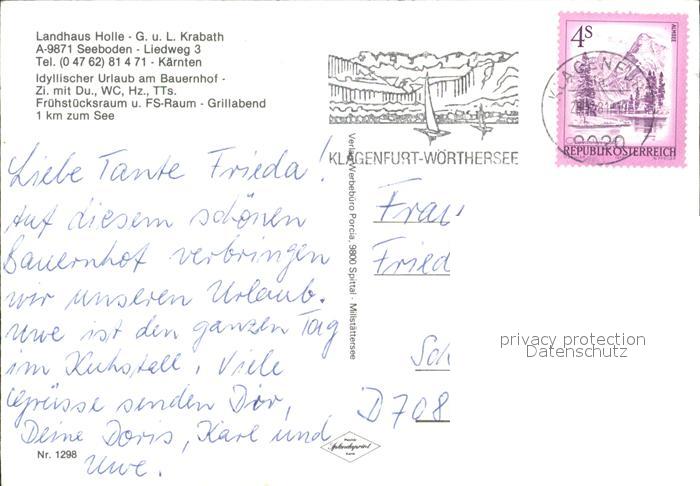 Landhaus Holle - G. u. L. Krabath
A-9871 Seeboden - Liedweg 3
Tel. (0 47 62) 81 4 71 - Kärnten
Idyllischer Urlaub am Bauernhof -
Zi. mit Du., WC, Hz., TTs.
Frühstücksraum u. FS-Raum - Grillabend
1 km zum See
KLAGENFURT-WÖRTHERSEE
4S
ALMSEE
REPUBLIK ÖSTERREICH
KLAGENFU
9020
Liebe Tante Frieda!
Auf diesem schönen
Bauernhof verbringen
wir unseren Urlaub.
Uwe ist den ganzen Tag
im Kuhstall. Viele
Grüsse senden Dir,
Deine Doris, Karl und
Uwe.
Verlag Werbebüro Porcia, 9800 Spittal - Millstättersee
Frau
Fried
Sch
D 708
privacy protection
Datenschutz
Nr. 1298